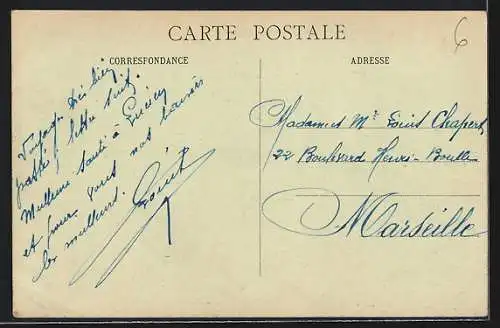 CARTE POSTALE
CORRESPONDANCE
Voyage très bien
passé, lettre suit.
Meilleure santé à
et pour vous nos baisers
les meilleurs.
Louis
ADRESSE
6
Madame Mr Louis Chapert
22 Boulevard Henri-Boulle
Marseille